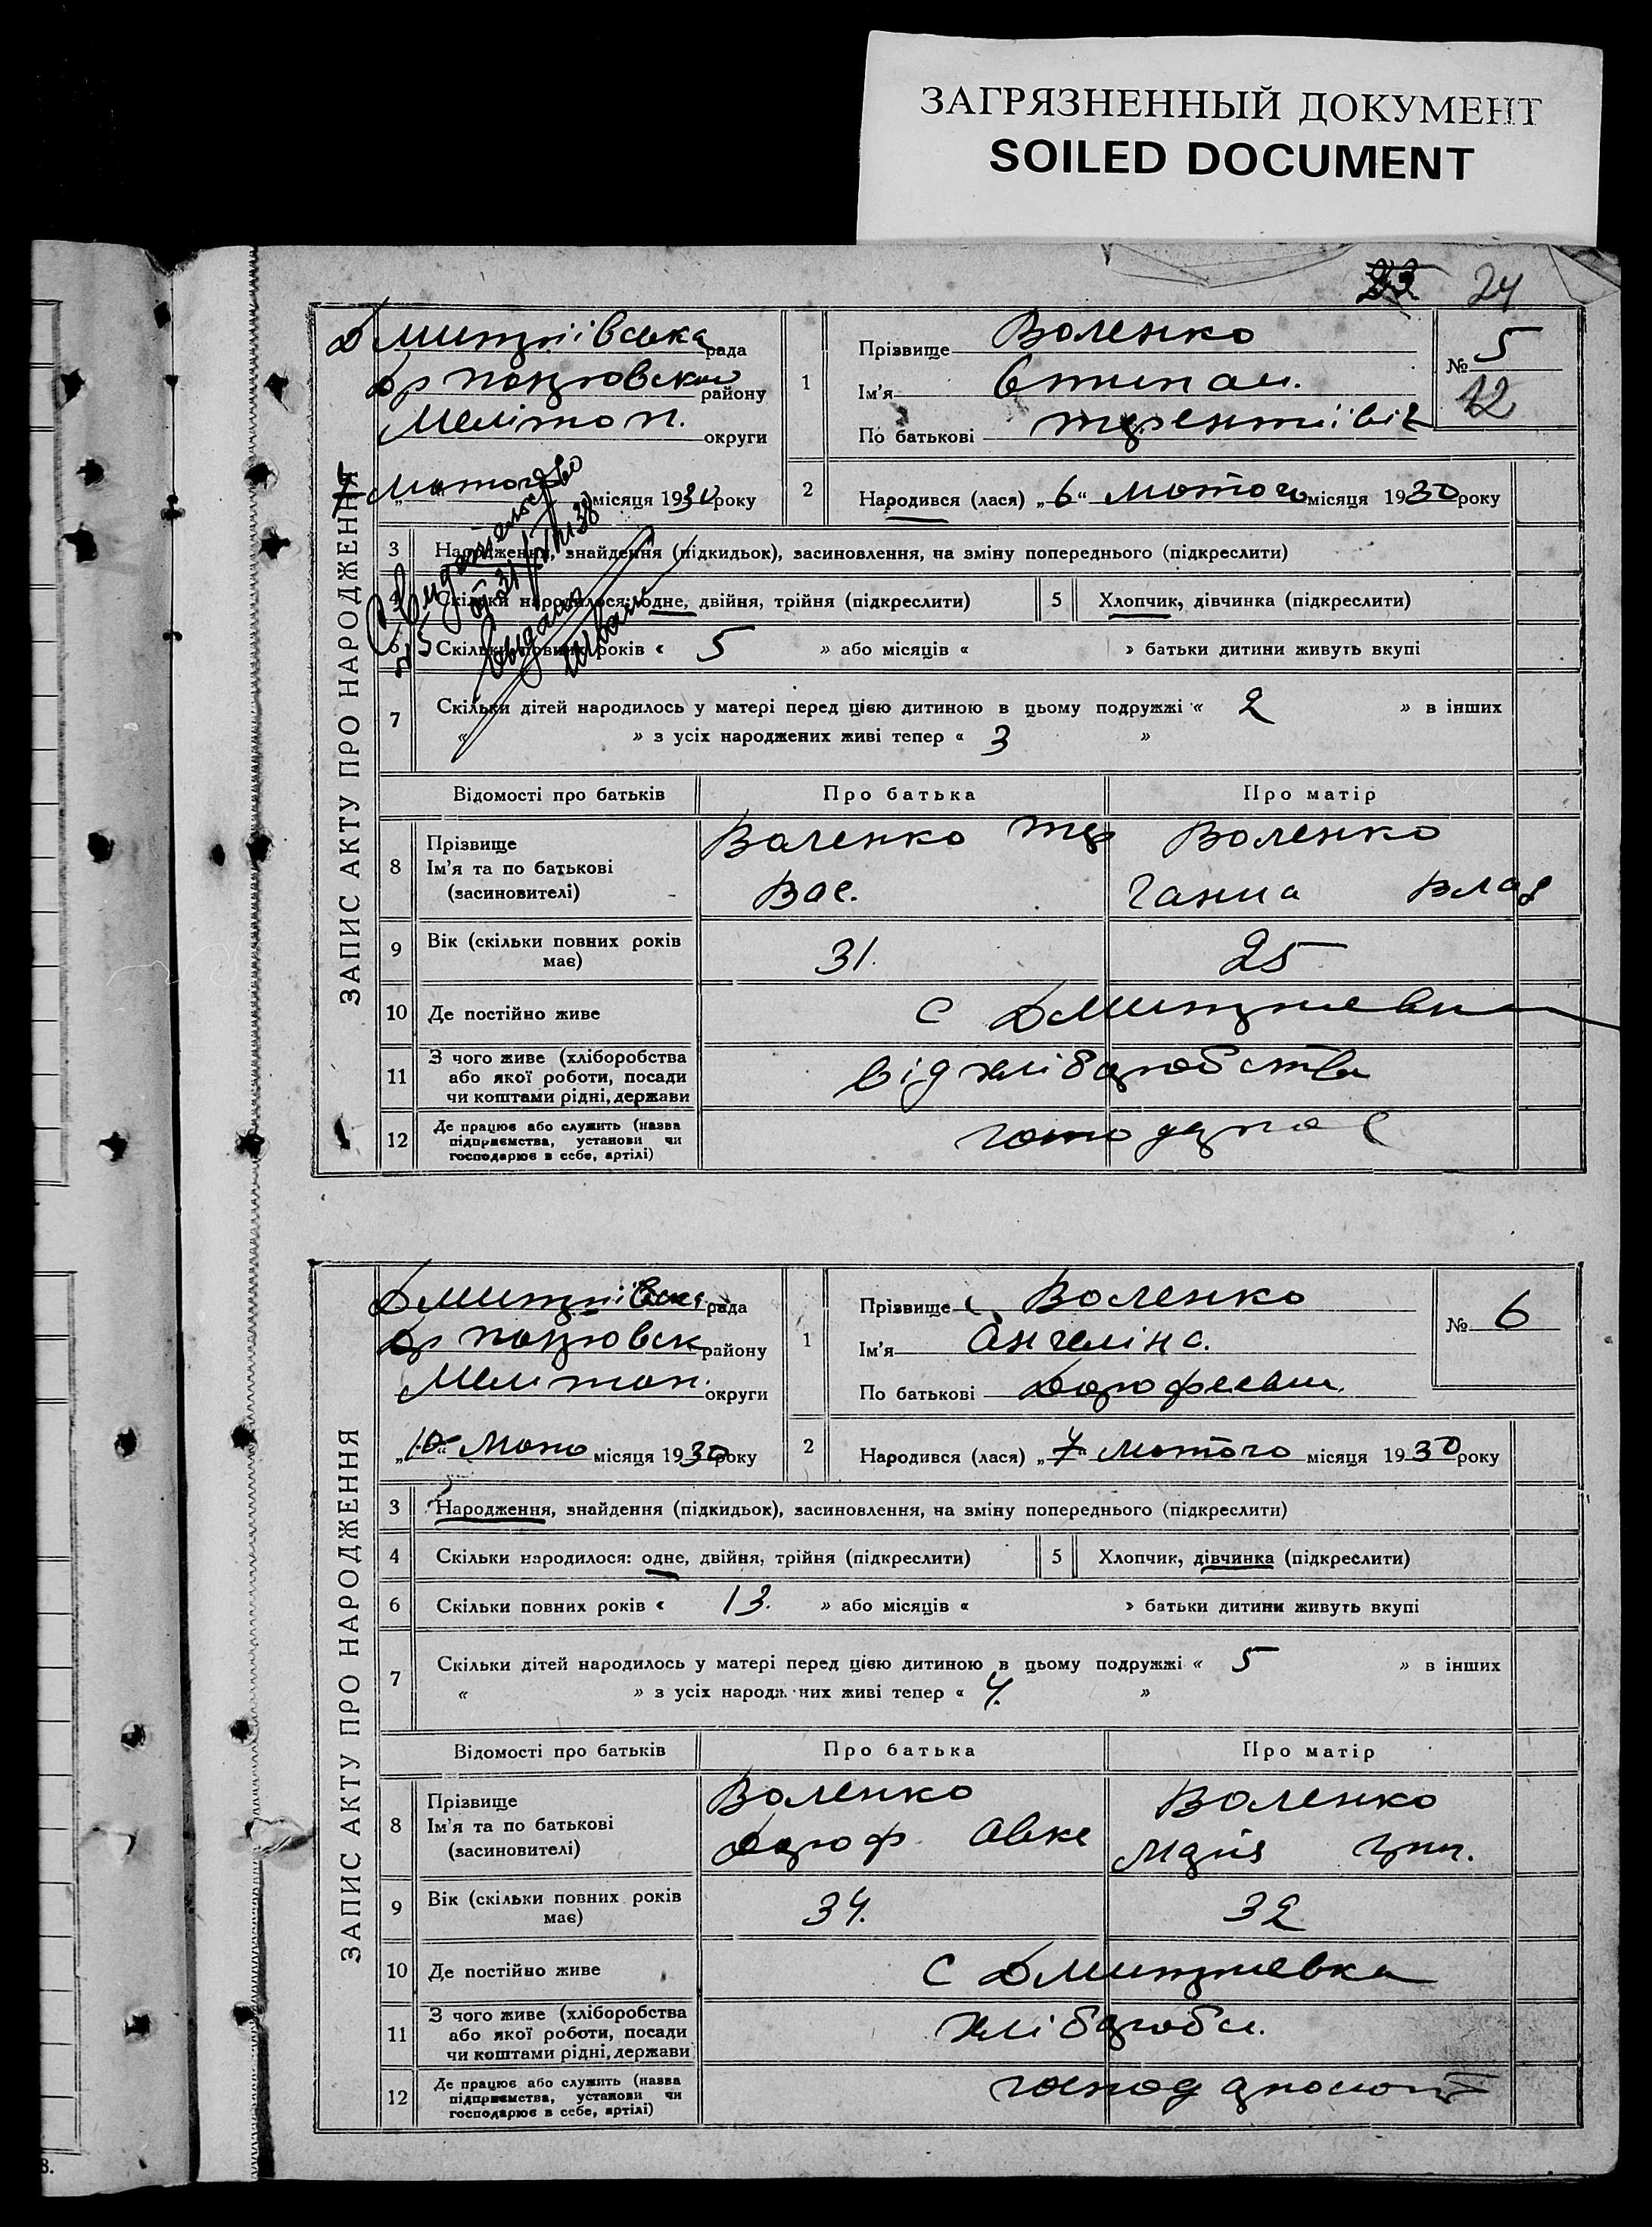 ЗАГРЯЗНЕННЫЙ ДОКУМЕНТ
SOILED DOCUMENT
23 24
ЗАПИС АКТУ ПРО НАРОДЖЕННЯ
Дмитріівська рада
району
Меліtoп. округи
7 лютого місяця 1930 року
1
Прізвище Воленко
Ім'я Степан.
По батькові Терентіівіч
№ 5
12
2
Народився (лася) „6“ лютого місяця 1930 року
3 Народження, знайдення (підкидьок), засиновлення, на зміну попереднього (підкреслити)
4 Скільки народилося: одне, двійня, трійня (підкреслити)
5 Хлопчик, дівчинка (підкреслити)
6 Скільки повних років « 5 » або місяців « » батьки дитини живуть вкупі
7 Скільки дітей народилось у матері перед цією дитиною в цьому подружжі « 2 » в інших
« » з усіх народжених живі тепер « 3 »
Відомості про батьків Про батька Про матір
8 Прізвище
Ім'я та по батькові
(засиновителі)
Воленко Тер
Вас.
Воленко
Ганна Влад
9 Вік (скільки повних років
має)
31. 25
10 Де постійно живе с Дмитриевка
11 З чого живе (хліборобства
або якої роботи, посади
чи коштами рідні, держави
від хліборобства
12 Де працює або служить (назва
підприємства, установи чи
господарює в себе, артілі)
ЗАПИС АКТУ ПРО НАРОДЖЕННЯ
Дмитріівська рада
району
Мелитоп. округи
„10“ місяця 1930 року
1
Прізвище Воленко
Ім'я Ангеліна.
По батькові Дорофеевна.
№ 6
2
Народився (лася) „7“ лютого місяця 1930 року
3 Народження, знайдення (підкидьок), засиновлення, на зміну попереднього (підкреслити)
4 Скільки народилося: одне, двійня, трійня (підкреслити)
5 Хлопчик, дівчинка (підкреслити)
6 Скільки повних років « 13. » або місяців « » батьки дитини живуть вкупі
7 Скільки дітей народилось у матері перед цією дитиною в цьому подружжі « 5 » в інших
« » з усіх народж них живі тепер « 4. »
Відомості про батьків Про батька Про матір
8 Прізвище
Ім'я та по батькові
(засиновителі)
Воленко
Дороф. Авкс
Воленко
Марія Григ.
9 Вік (скільки повних років
має)
34. 32
10 Де постійно живе с Дмитриевка
11 З чого живе (хліборобства
або якої роботи, посади
чи коштами рідні, держави
хліборобс.
12 Де працює або служить (назва
підприємства, установи чи
господарює в себе, артілі)
8.